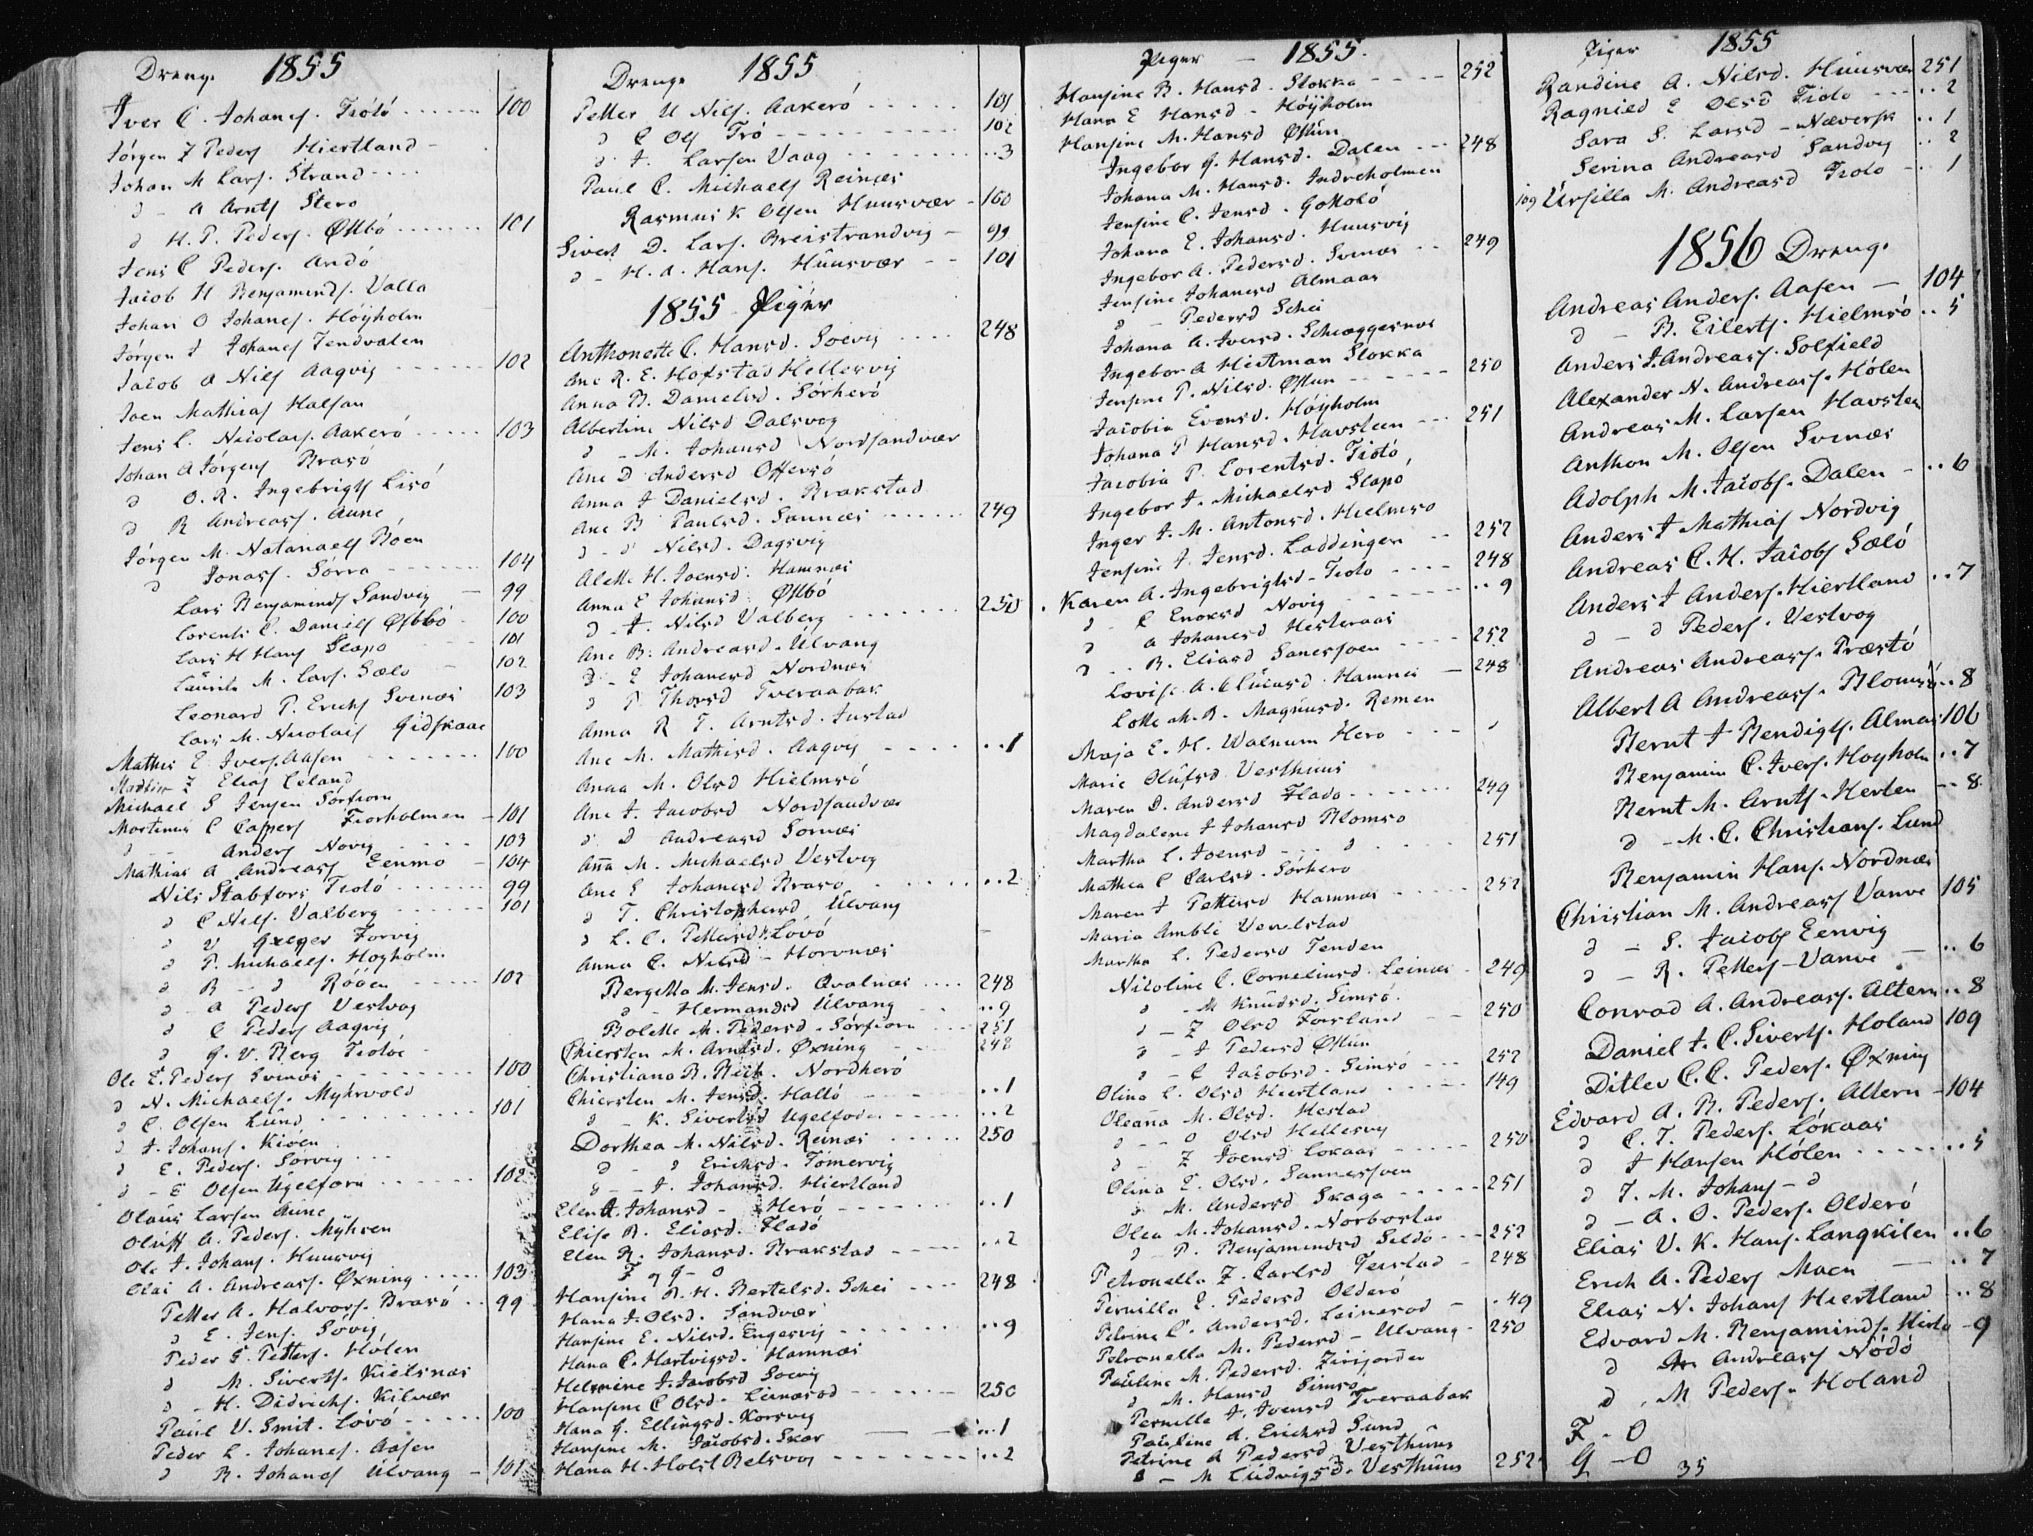 Drenge 1855
Iver C. Johanes. Tiötö 100
Jörgen Z Peders Hiertland
Johan M Lars. Strand
d - A Arnts Stero
d H. P. Peders. Østbö 101
Jens C Peders. Andö
Jacob H Benjamins. Valla
Johan O Johanes. Höyholm
Jörgen J Johanes Tendvalen
Jacob A Nils Aagvig 102
Joen Mathias Halsan
Jens L. Nicolais. Aakerö 103
Johan A Jörgens Brasö
d O. R. Ingebrigts Lisö
d R Andreas. Aune
Jörgen M. Natanaels Röen
d Jonas. Sörra 104
Lars Benjamins Sandvig 99
Lorents C. Daniels Østbö 100
Lars H Hans Slapö 101
Laurits M. Lars. Sælö 102
Leonard P. Erichs Svinæs 103
Lars M. Nicolais Gidskaac
Mathis E Ivers. Aasen 100
Mathias Z Elias Leland
Michael S Jensen Sörfiorn
Mortinus C Caspers Fiorholmen 101
d - Anders Novig 103
Mathias A Andreas Eenmo 104
Nils Stabfors Tiotö 99
d C Nils. Valberg 101
d V Greger Forvig
d P. Michaels. Höyholm
d B - d Rööen 102
d - A Peders Vestvog
d C Peders Aagvig
d G. V. Berg Tiotöe
Ole E. Peders Svinæs 100
d N. Michaels. Myhrvold
d C. Olsen Lund 101
d J. Johans. Kiöen
d E. Peders. Sörvig
d - E Olsen Ugelforn 102
Olaus Larsen Aune
Oluff A. Peders. Myhren
Ole J. Johans. Huusvig
Olai A. Andreas. Øxning 103
Petter A. Halvors. Brasö 99
d E. Jens. Sövig
Peder G. Petters. Hölen
d M. Siverts. Kielsnæs
d - H. Didrichs. Kilvær
Paul V. Smit. Lövö 100
Peder L. Johanes. Aasen
d B. Johanes Ulvang 101
Drenge 1855
Petter U Nils. Aakerö 101
d C Ols Trö 102
d J. Larsen Vaag 3
Paul C. Michaels Reinæs
Rasmus K Olsen Huusvær 160
Sivert D. Lars. Breistrandvig 99
d - H. A. Hans. Huusvær 101
1855 Piger
Anthonette C. Hansd. Soevig 248
Ane R. E. Hofstad Hellervig
Anna B. Danielsd. Sörherö
Albertine Nilsd Dalsvog
d - M. Johansd Nordsandvær
Ane D Andersd Offersö
Anna J Danielsd. Brakstad
Ane B Paulsd. Sannæs 249
d - d Nilsd. Dagsvig
Alette H. Joensd. Hamnæs
Anna E Johansd. Østbö
d - J. Nilsd Valberg 250
Ane B. Andreasd. Ulvang
d - E Johanesd Nordnæs
d P Thorsd Tveraabak
Anna R T. Arntsd. Justad
Ane M. Mathisd. Aagvig 1
Anna M. Olsd Hielmsö
Ane J. Jacobsd Nordsandvær
d d Andreasd Sornæs
Ana M. Michaelsd Vestvig
Ane E Johanesd Brasö 2
d T. Christophersd Ulvang
d L. C. Pettersd Lövö
Anna C. Nilsd - Horvnæs
Bergitta M. Jensd. Qvalnæs 248
d - Hermandsd Ulvang 9
Bolette M. Pedersd. Sörfiorn 251
Chiersten M. Arntsd. Øxning 248
Christiana B. Beck. Nordherö
Chiersten M. Jensd. Haltö 1
d - K. Sivertsd Ugelforn 2
Dorthea M. Nilsd. Reinæs 250
d - d Erichsd. Tömervig
d - J. Johansd. Hiertland
Elen A. Johansd - Herö 1
Elise B. Eliasd. Fladö
Elen R. Johansd. Brakstad 2
F og G - 0
Hansine B. H. Bertelsd. Schei 248
Hana J. Olsd. Sandvær
Hansine E. Nilsd. Engesvig 9
Hana C. Hartvigsd. Hamnæs
Helmine J. Jacobsd Soevig
Hansine C Olsd. Leinæsod 250
Hana G. Ellingsd. Korsvig
Hansine M. Jacobsd. Skar 1
Hana H. Holst Belsvog 2
Piger - 1855.
Hansine B. Hansd. Slokka 252
Hana E Hansd - Höyholm
Hansine M. Hansd Østun
Ingebor G. Hansd. Dalen 248
Johana M. Hansd. Indreholmen
Jensine C. Jensd. Gottolö
Johana E. Johansd. Huusvig
Ingebor A. Pedersd. Svinæs 249
Jensine Johanesd Almaas
d - Pedersd Schei
Johana A. Iversd. Schieggesnæs
Ingebor A Heitman Slokka
Jensine P. Nilsd. Østun 250
Jacobia Evensd. Höyholm
Johana P Hansd. Havsteen 251
Jacobia P. Lorentsd. Tiötö
Ingebor J. Michaelsd Slapö
Inger J. M. Antonsd. Hielmsö
Jensine J. Jensd. Laddingen 252
Karen A. Ingebrigtsd. Tiotö 248
d C Enoksd Novig 9
d a Johanesd Hesteraas
d B. Eliasd Sanesjoen 252
Lovise A. Clausd. Hamnes 248
Lotte M. B. Magnusd. Remen
Maja E. H. Walnum Hero
Marie Olufsd. Vesthuus
Maren D. Andersd Flada 249
Magdalene J Johansd Blomsö
Martha L. Joensd - d 251
Mathea C Carlsd. Sörherö
Maren J Pettersd Hamnæs 252
Maria Ambli Vevelstad
Martha L. Pedersd Tenden
Nicoline C. Corneliusd. Leinæs 249
d - M Knudsd. Simsö
d - Z Olsd Forsland 250
d - J Pedersd Østun
d - C Jacobsd. Simsö 252
Olina L. Olsd Hiertland 149
Oleana M. Olsd. Hestad
d - O Olsd Hellesvig
d - Z Joensd Lokaas 250
Olina E. Olsd. Sannessoen
d M. Andersd Skaga 251
Olea M. Johansd. Norbostad
d - P. Benjamindsd Seldö 252
Petronella Z. Carlsd Terstad 248
Pernilla E. Pedersd Olderö
Petrine C. Andersd. Leinesod 49
Petronella M. Pedersd - Ulvang 250
Pauline M. Pedersd. Zirijorder
d M. Hansd Simsö
Pernille J. Joensd Tveraabak
Pauline A. Erichsd Sund
Petrine A Pedersd Vesthuus
d - M Ludvigsd. Vesthuus 252
Piger 1855
Randine A. Nilsd. Huusvær 251
Ragnild E Olsd Tioto 2
Sara S. Larsd - Næversk 1
Serina Andreasd Sandvig 2
109 Ursilla M. Andreasd Tioto 1
1856 Drenge
Andreas Anders. Aasen 104
d - B. Eilerts. Hielmsö 5
Anders J. Andreas. Solfield
Alexander N. Andreas. Hölen
Andreas M. Larsen Havsten
Anthon M. Olsen Svinæs
Adolph M. Jacobs. Dalen 6
Anders J Mathias Nordvig
Andreas C. H. Jacobs Sælö
Anders J Anders. Hiertland 7
d - d Peders. Vestvog
Andreas Andreas. Præstö
Albert A Andreas. Blomsö 8
Bernt J Bendigts. Almaas 106
Benjamin C. Ivers. Höyholm 7
Bernt M. Arnts. Herten 8
d - M. C. Christians. Lund
Benjamin Hans. Nordnæs
Christian M. Andreas Vanve 105
d - S. Jacobs Eenvig
d - R. Petters - Vanve 6
Conrad A. Andreas. Altern 8
Daniel J. C. Siverts. Holand 109
Ditlev C. C. Peders. Øxning
Edvard A. B. Peders. Altern 104
d C. T. Peders. Lökaas
d J Hansen Hölen 5
d J. M. Johans - d
d - A. O. Peders. Olderö
Elias V. K. Hans. Langkilen 6
Erich A. Peders Maen 7
Elias N. Johans Hiertland 8
Edvard M. Benjamins. Hirto 9
d A Andreas Nödö
d M Peders. Holand
F - 0
G - 0
35